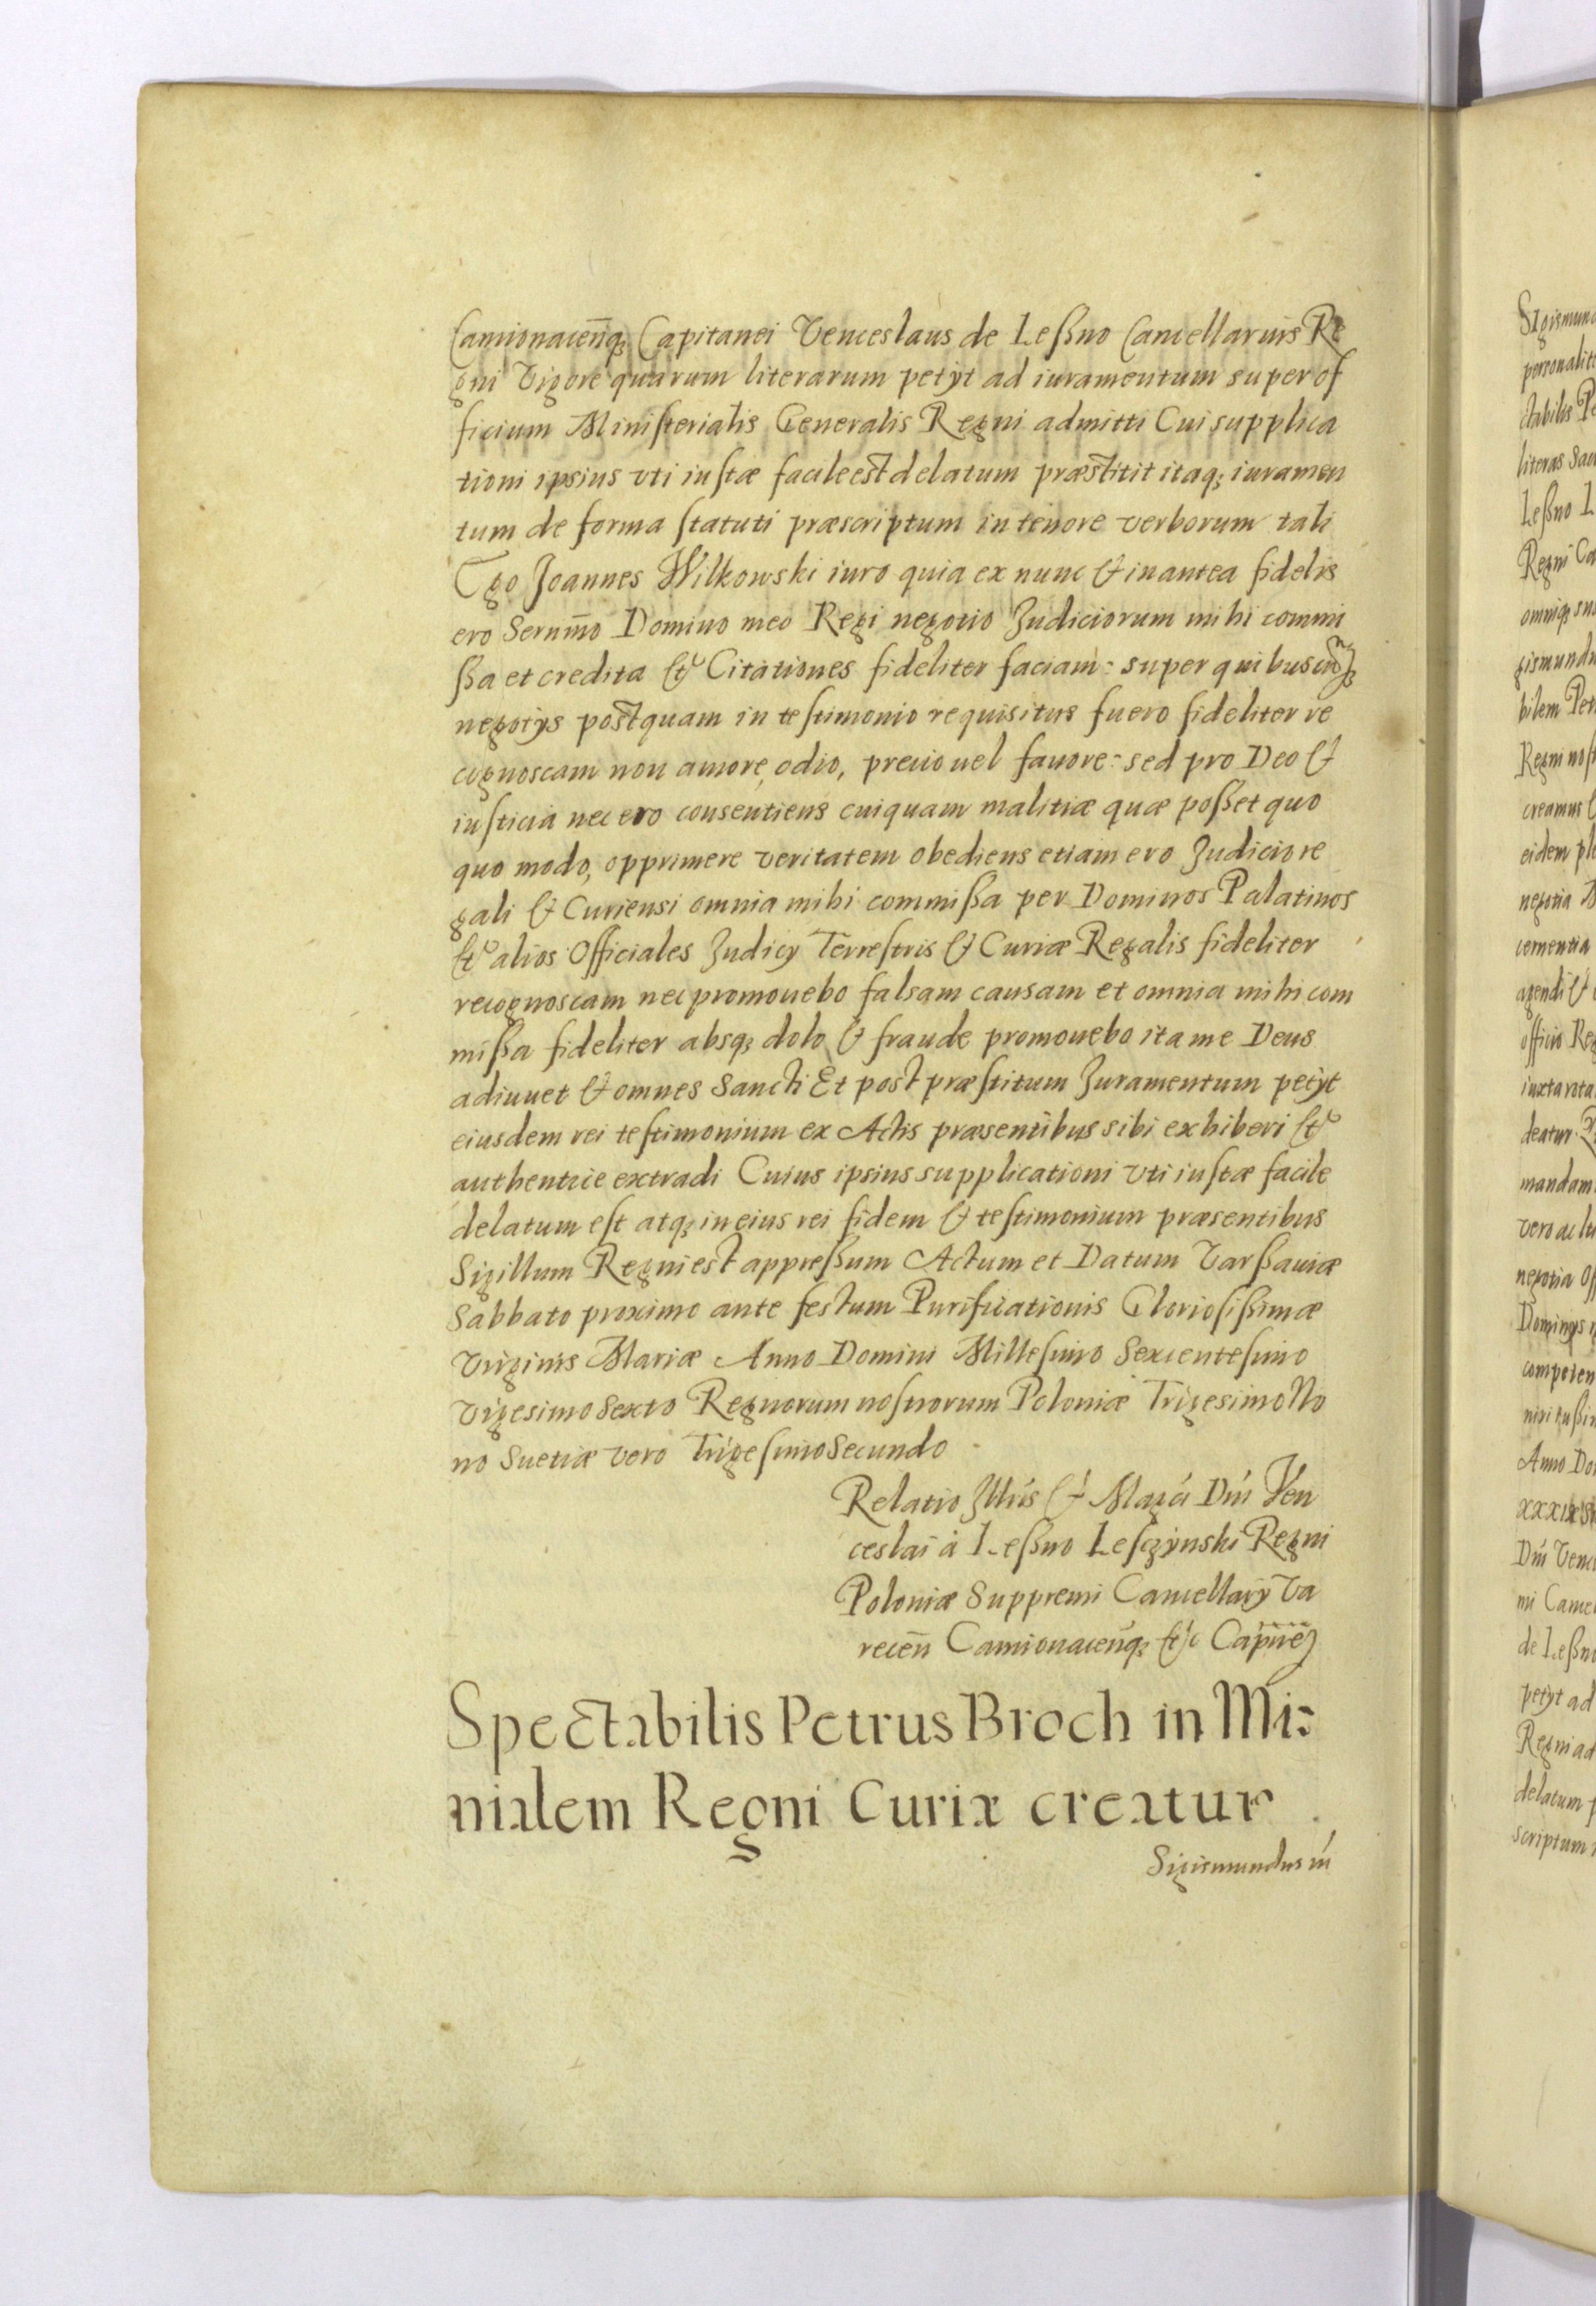 Camionacen̄q; Capitanei Venceslaus de Leßno Cancellarius Re
gni Vigore quarum literarum petyt ad iuramentum super of
ficium Ministerialis Generalis Regni admitti Cui supplica
tioni ipsius vti iustæ facile est delatum præstitit itaq; iuramen
tum de forma statuti præscriptum in tenore verborum tali
Ego Joannes Wilkowski iuro quia ex nunc & in antea fidelis
ero Serenm̄o Domino meo Regi negotio Judiciorum mihi commi
ßa et credita & Citationes fideliter faciam: super quibuscun̄q;
negotys postquam in testimonio requisitus fuero fideliter re
cognoscam non amore, odio, precio uel fauore: sed pro Deo &
iusticia nec ero consentiens cuiquam malitiæ quæ poßet quo
quo modo, opprimere veritatem obediens etiam ero Judicio re
gali & Curiensi omnia mihi commißa per Dominos Palatinos
& alios Officiales Judicy Terrestris & Curiæ Regalis fideliter
recognoscam nec promouebo falsam causam et omnia mihi com
mißa fideliter absq; dolo & fraude promouebo ita me Deus
adiuuet & omnes Sancti Et post præstitum Juramentum petyt
eiusdem rei testimonium ex Actis præsentibus sibi exhiberi &
authentice extradi Cuius ipsius supplicationi vti iustæ facile
delatum est atq; in eius rei fidem & testimonium præsentibus
Sigillum Regni est appreßum Actum et Datum Varßauiæ
Sabbato proximo ante festum Purificationis Gloriosißimæ
Virginis Mariæ Anno Domini Millesimo Sexcentesimo
Vigesimo Sexto Regnorum nostrorum Poloniæ Trigesimo No
no Suetiæ vero Trigesimo Secundo
Relatio Illris & Magci Dni Ven
ceslai à Leßno Lesczynski Regni
Poloniæ Suppremi Cancellary Va
recen̄ Camionacen̄q; &c Capnei
Spectabilis Petrus Broch in Mi:
nialem Regni Curiæ creatur
Sigismundus III
Sigismund
personalite
ctabilis Pe
literas Sac
Leßno L
Regni Ca
omniq; sn
gismundu
bilem Pet
Regni nost
creamus &
eidem ple
negotia
cementia
agendi &
officio Reg
iuxta rota
deatur.
mandam
vero ac
negotia Of
Dominys
competen
niri
Anno Do
xxxix
Dni Vence
mi Cance
de Leßno
petyt ad
Regni ad
delatum p
scriptum